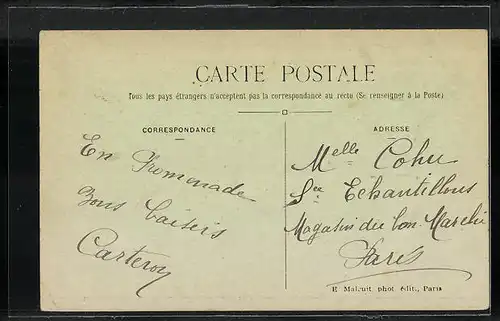 CARTE POSTALE
Tous les pays étrangers n'acceptent pas la correspondance au recto (Se renseigner à la Poste)
CORRESPONDANCE
ADRESSE
En Promenade
Bons baisers
Carteron
Melle Cohu
Sce Echantillons
Magasin du bon Marché
Paris
E Malcuit phot. édit., Paris